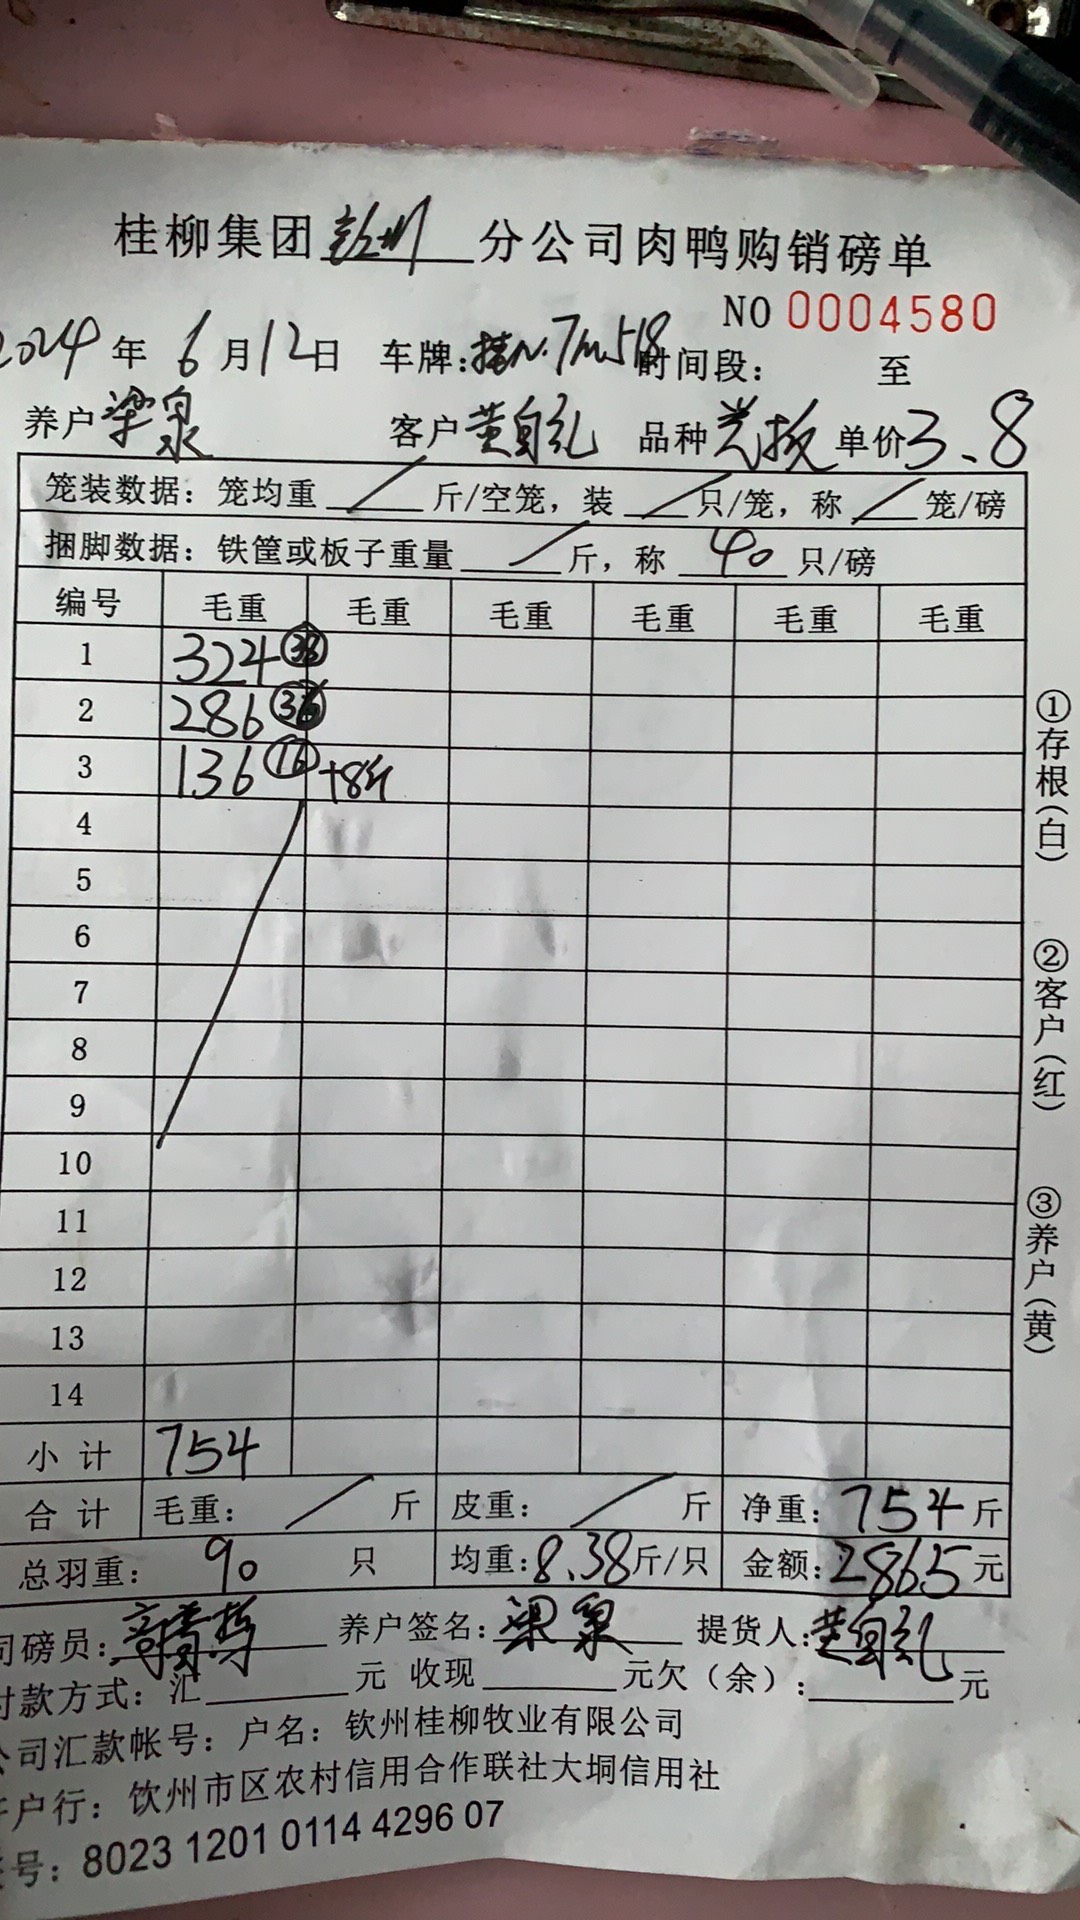 桂柳集团钦州分公司肉鸭购销磅单
NO 0004580
2024年6月12日 车牌:桂N·7m518 时间段: 至
养户梁泉 客户黄自礼 品种 单价3.8
笼装数据:笼均重 / 斤/空笼,装 / 只/笼,称 / 笼/磅
捆脚数据:铁筐或板子重量 / 斤,称 40 只/磅
编号 毛重 毛重 毛重 毛重 毛重 毛重
1 324 38
2 286 36
3 136 16 +8斤
4
5
6
7
8
9
10
11
12
13
14
小计 754
合计 毛重: / 斤 皮重: / 斤 净重:754斤
总羽重:90只 均重:8.38斤/只 金额:2865元
司磅员: 养户签名:梁泉 提货人:黄自礼
付款方式:汇 元 收现 元欠(余): 元
公司汇款帐号:户名:钦州桂柳牧业有限公司
开户行:钦州市区农村信用合作联社大垌信用社
号:8023 1201 0114 4296 07
①存根(白)
②客户(红)
③养户(黄)